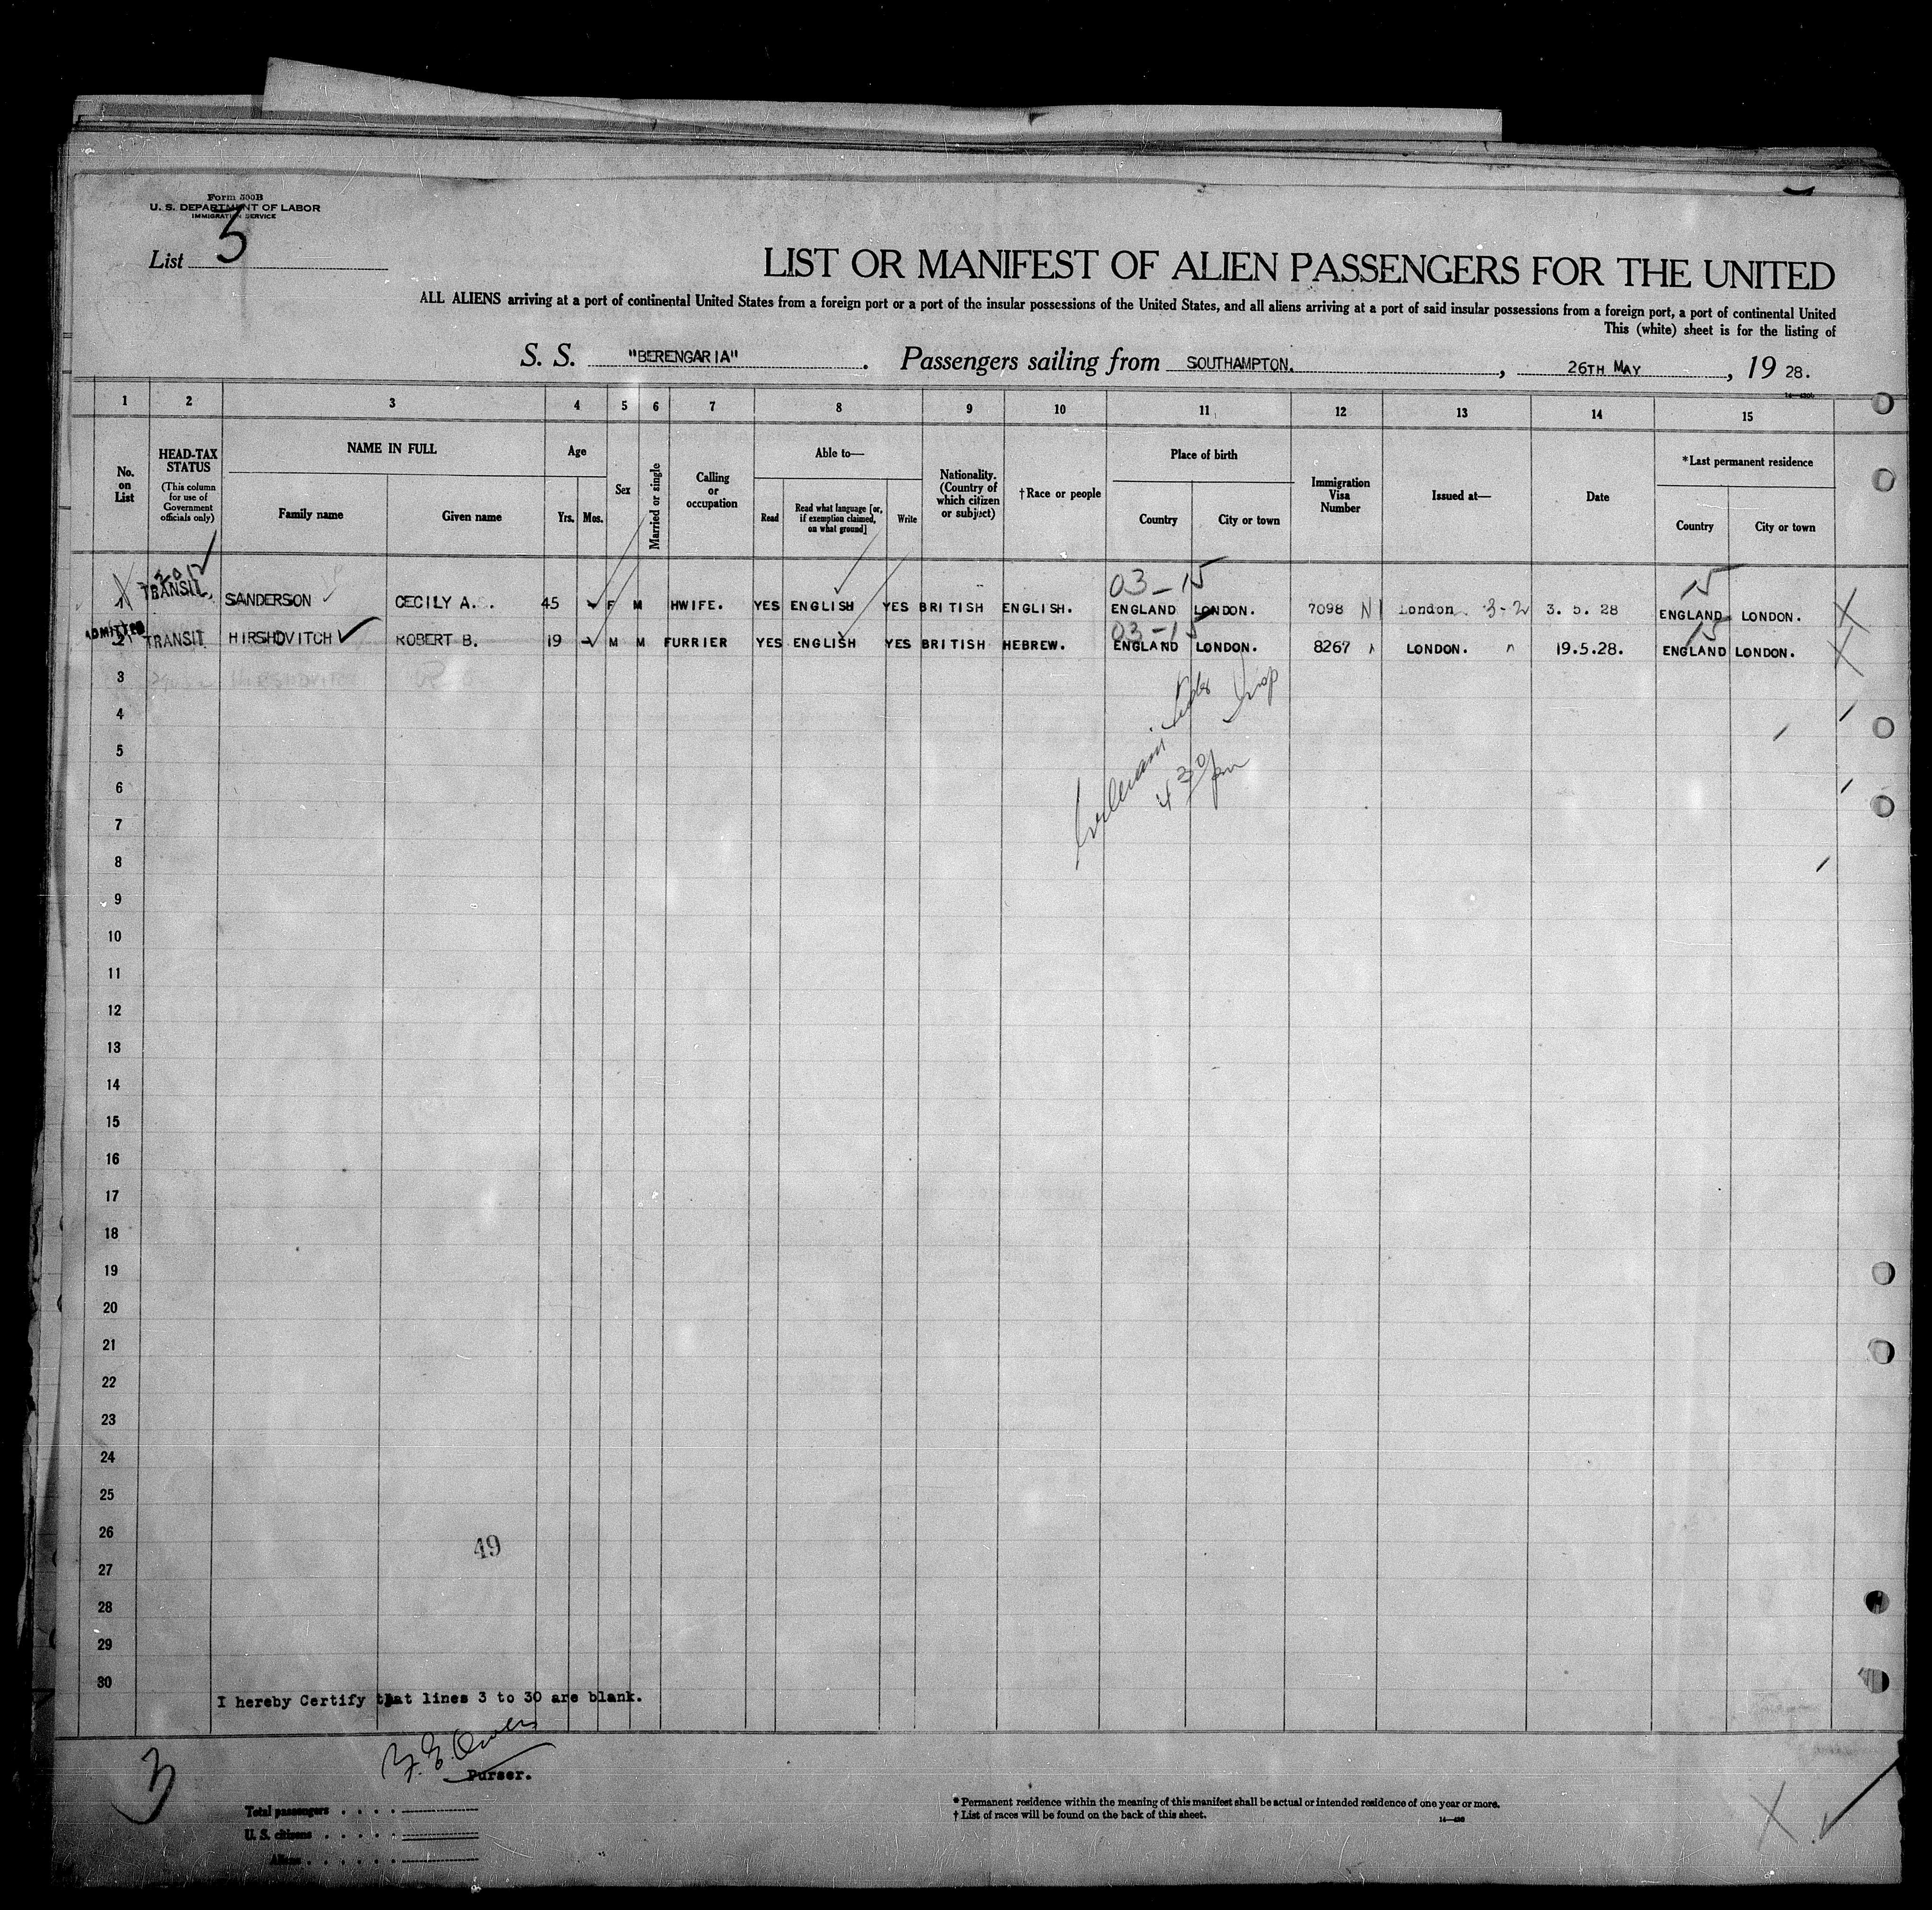 Form 500B
U. S. DEPARTMENT OF LABOR
IMMIGRATION SERVICE
List 3
LIST OR MANIFEST OF ALIEN PASSENGERS FOR THE UNITED
ALL ALIENS arriving at a port of continental United States from a foreign port or a port of the insular possessions of the United States, and all aliens arriving at a port of said insular possessions from a foreign port, a port of continental United
This (white) sheet is for the listing of
S. S. "BERENGARIA". Passengers sailing from SOUTHAMPTON., 26TH MAY, 19 28.
1 2 3 4 5 6 7 8 9 10 11 12 13 14 15
No. on List
HEAD-TAX STATUS
(This column for use of Government officials only)
NAME IN FULL
Family name
Given name
Age
Yrs. Mos.
Sex
Married or single
Calling or occupation
Able to—
Read
Read what language [or, if exemption claimed, on what ground]
Write
Nationality. (Country of which citizen or subject)
†Race or people
Place of birth
Country
City or town
Immigration Visa Number
Issued at—
Date
*Last permanent residence
Country
City or town
03-15 15
TRANSIT. SANDERSON CECILY A. 45 F M HWIFE. YES ENGLISH YES BRITISH ENGLISH. ENGLAND LONDON. 7098 London 3-2 3. 5. 28 ENGLAND LONDON. X
ADMITTED 03-15 15
2 TRANSIT HIRSHOVITCH ROBERT B. 19 M M FURRIER YES ENGLISH YES BRITISH HEBREW. ENGLAND LONDON. 8267 LONDON. 19.5.28. ENGLAND LONDON. X
3
4
5
6
4 30 pm
7
8
9
10
11
12
13
14
15
16
17
18
19
20
21
22
23
24
25
26
49
27
28
29
30
I hereby Certify that lines 3 to 30 are blank.
Purser.
3
Total passengers
U. S. citizens
Aliens
* Permanent residence within the meaning of this manifest shall be actual or intended residence of one year or more.
† List of races will be found on the back of this sheet.
X